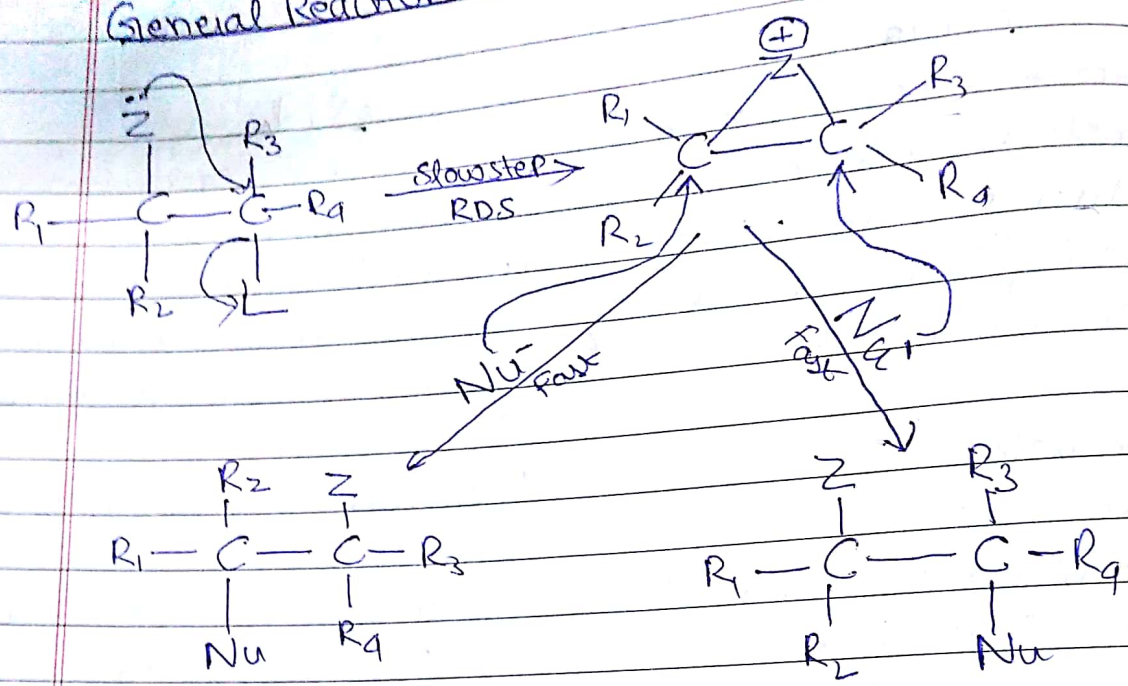 General Reaction
Z̈
R3
R1 — C — C — R4
R2 L
Slow step
RDS
⊕
Z
R1 C C R3
R2 R4
Nu⁻ Fast
Fast Nu⁻
R2 Z
R1 — C — C — R3
Nu R4
Z R3
R1 — C — C — R4
R2 Nu